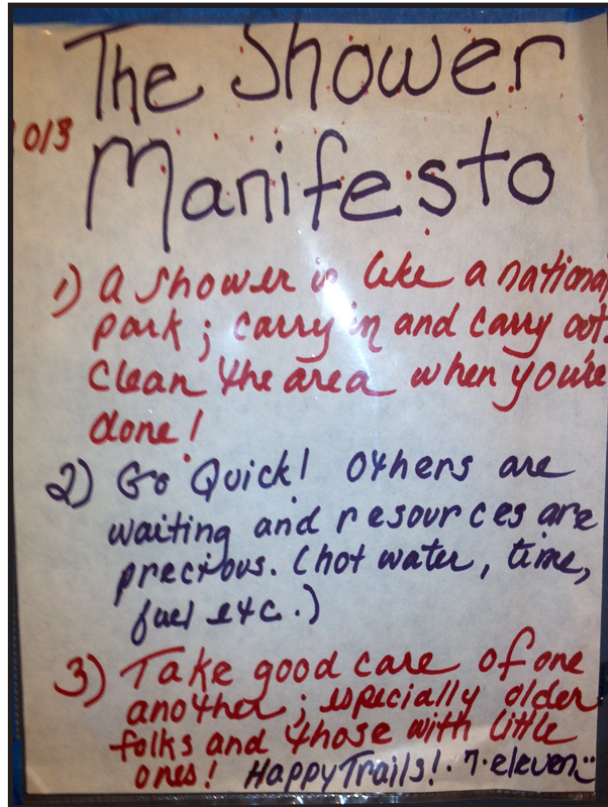 The Shower
013
Manifesto
1) A shower is like a national
park; carry in and carry out.
Clean the area when you're
done!
2) Go Quick! Others are
waiting and resources are
precious. (hot water, time,
fuel etc.)
3) Take good care of one
another; especially older
folks and those with little
ones! Happy Trails! · 7·eleven